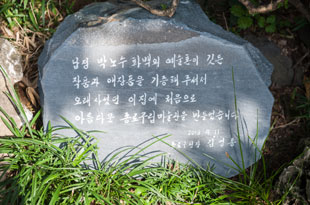 남정 박노수 화백의 예술혼이 깃든
작품과 애장품을 기증해 주셔서
오래 사셨던 이 집에 처음으로
아름다운 종로구립미술관을 만들었습니다
2013. 9. 11
종로구청장 김영종